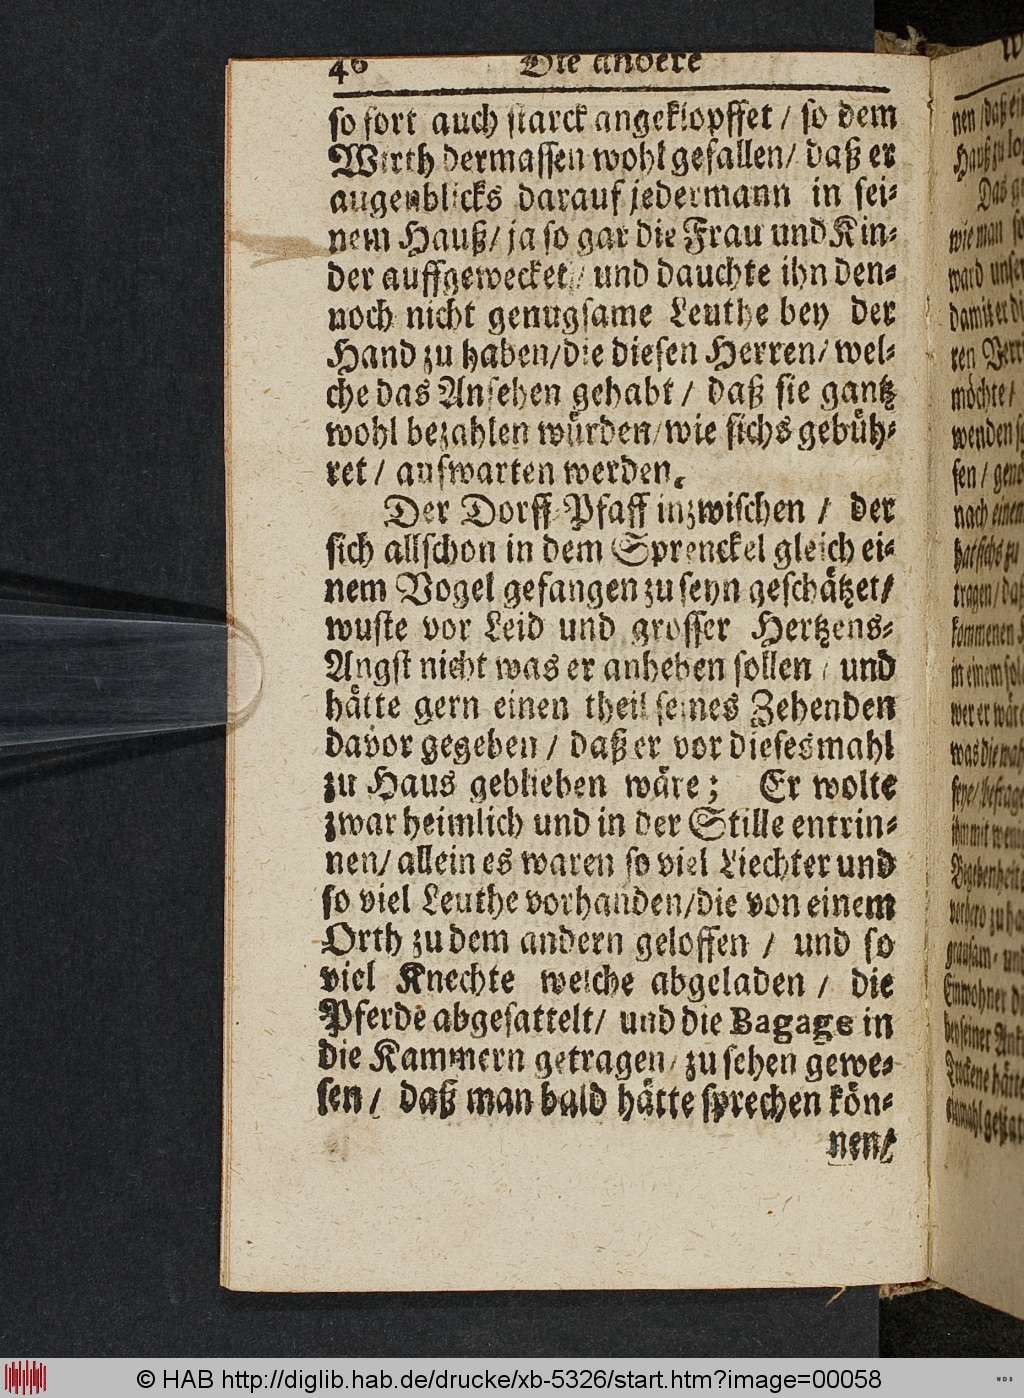 46 Die andere
so fort auch starck angeklopffet / so dem
Wirth dermassen wohl gefallen / daß er
augenblicks darauf jedermann in sei-
nem Hauß / ja so gar die Frau und Kin-
der auffgewecket / und dauchte ihn den-
noch nicht genugsame Leuthe bey der
Hand zu haben / die diesen Herren / wel-
che das Ansehen gehabt / daß sie gantz
wohl bezahlen würden / wie sichs gebüh-
ret / aufwarten werden.
Der Dorff-Pfaff inzwischen / der
sich allschon in dem Sprenckel gleich ei-
nem Vogel gefangen zu seyn geschätzet /
wuste vor Leid und grosser Hertzens-
Angst nicht was er anheben sollen / und
hätte gern einen theil seines Zehenden
davor gegeben / daß er vor diesesmahl
zu Haus geblieben wäre; Er wolte
zwar heimlich und in der Stille entrin-
nen / allein es waren so viel Liechter und
so viel Leuthe vorhanden / die von einem
Orth zu dem andern geloffen / und so
viel Knechte welche abgeladen / die
Pferde abgesattelt / und die Bagage in
die Kammern getragen / zu sehen gewe-
sen / daß man bald hätte sprechen kön-
nen /
© HAB http://diglib.hab.de/drucke/xb-5326/start.htm?image=00058